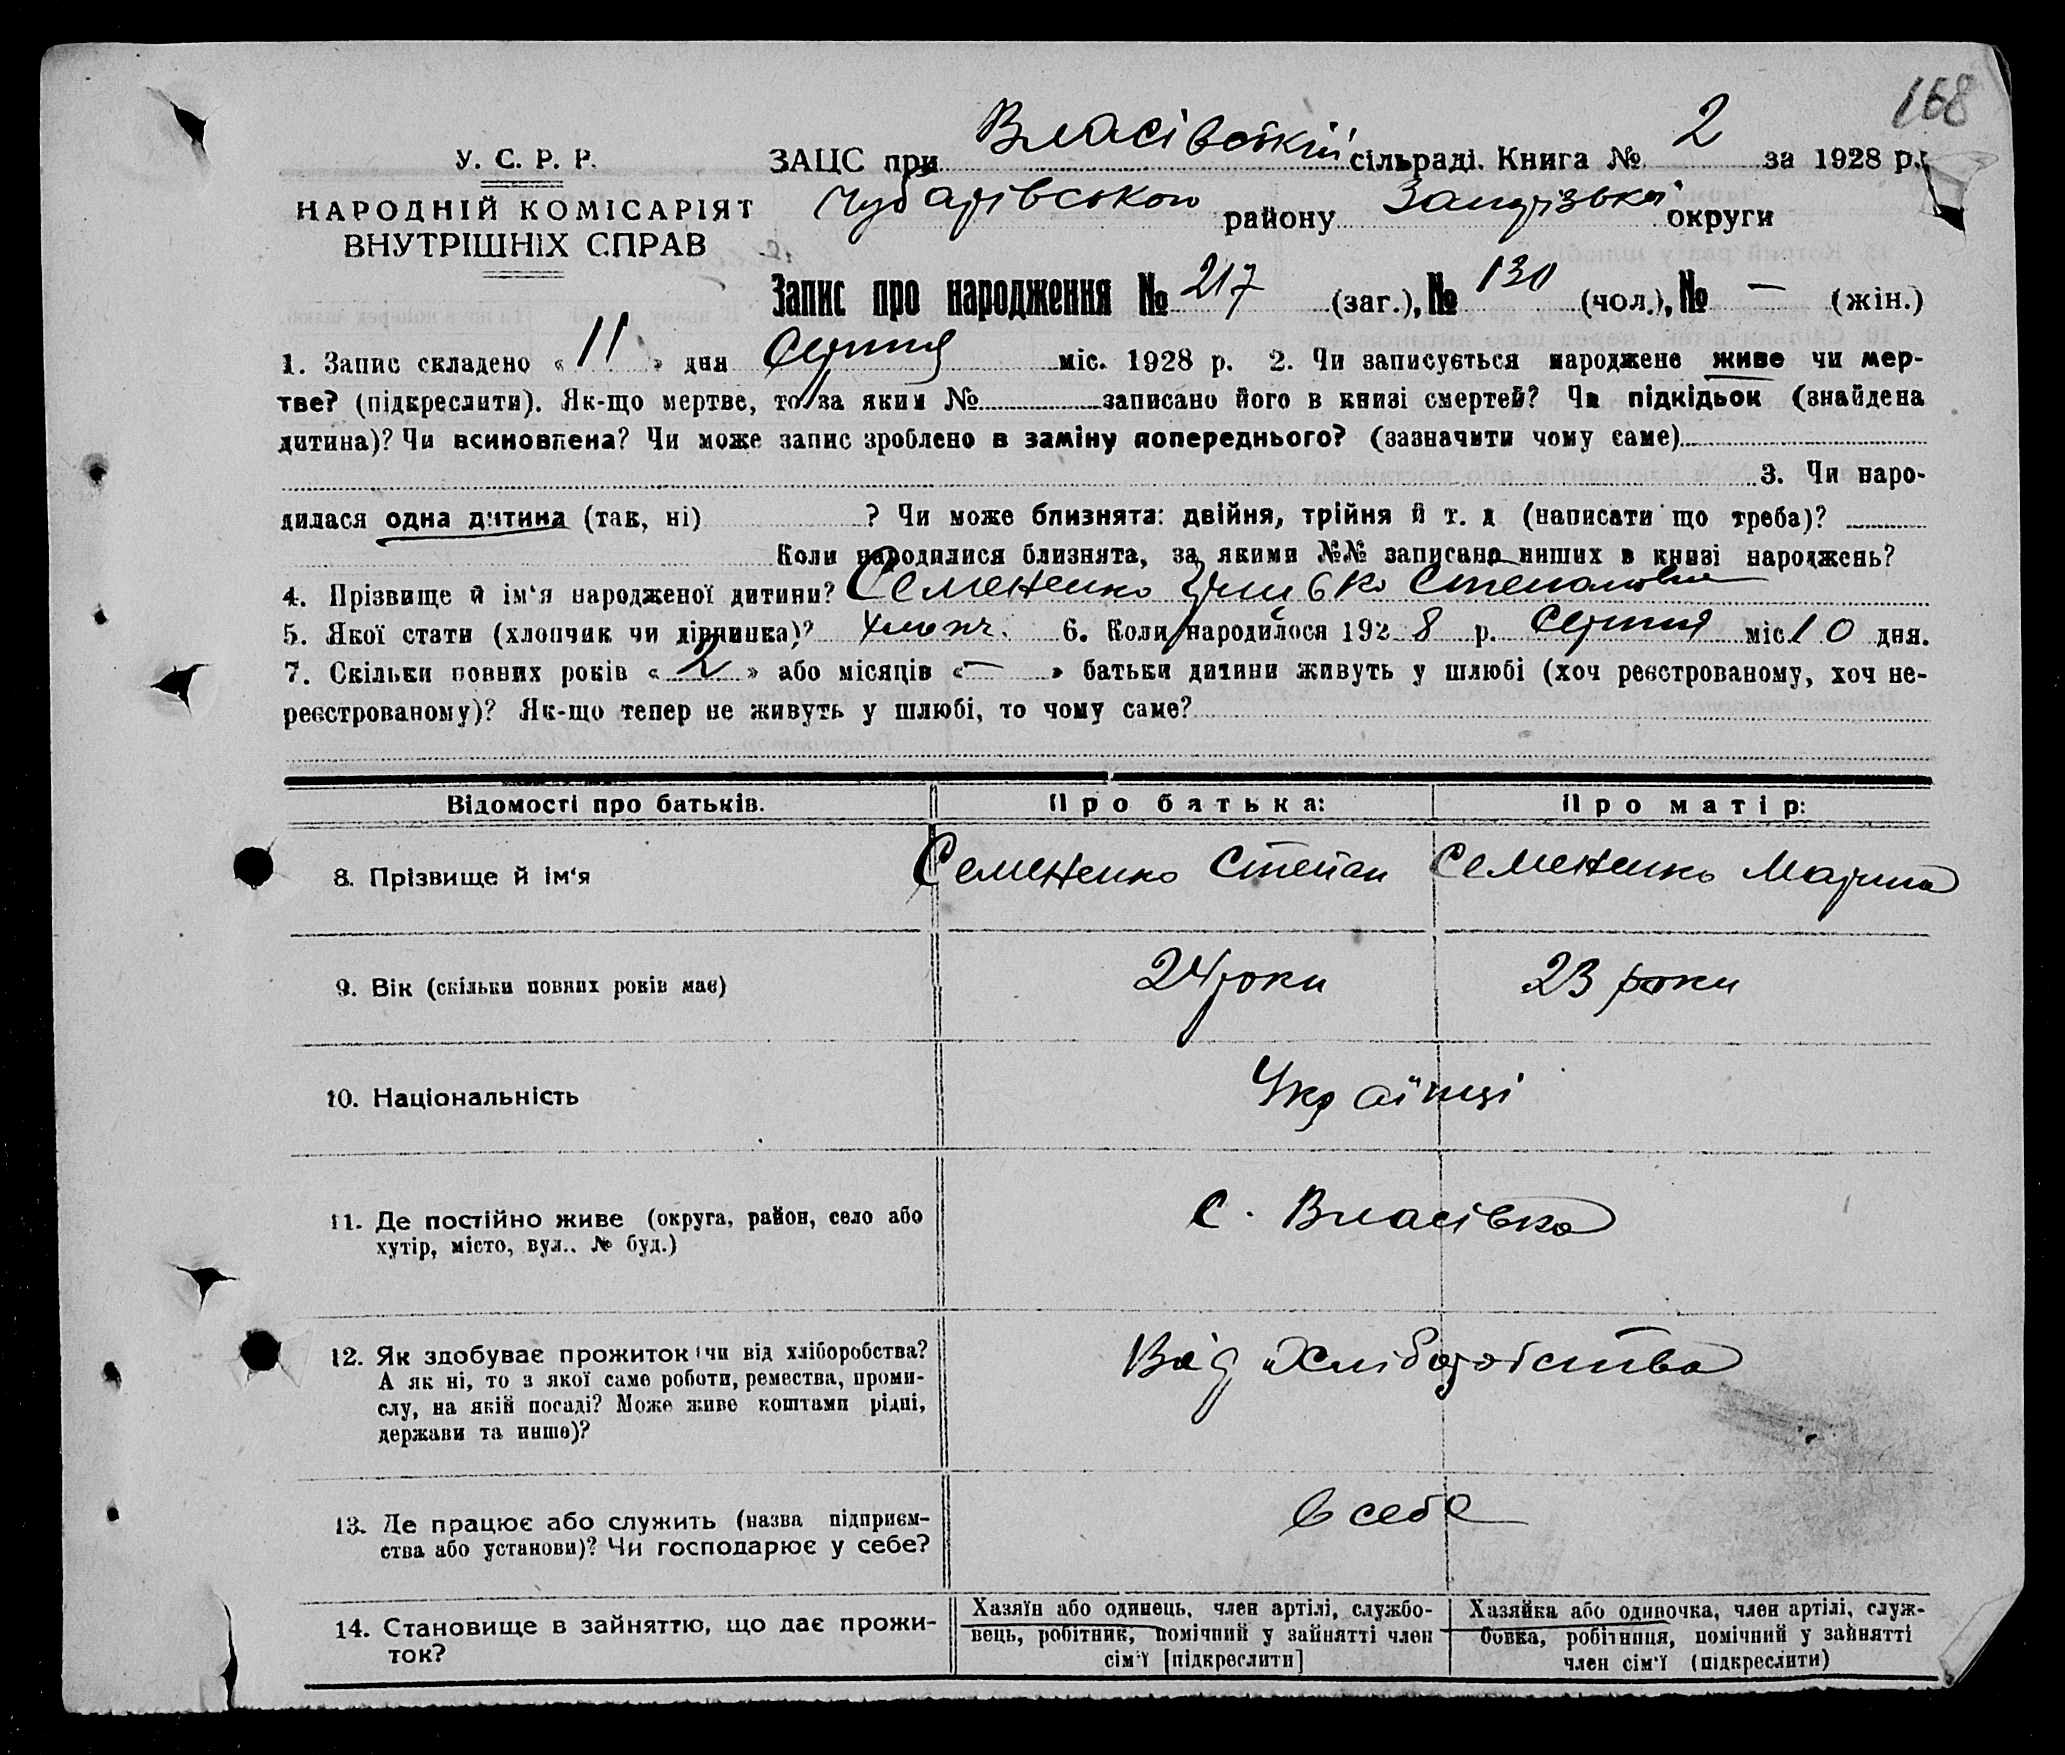 168
У. С. Р. Р.
НАРОДНІЙ КОМІСАРІЯТ
ВНУТРІШНІХ СПРАВ
ЗАЦС при Власівській сільраді. Книга № 2 за 1928 р.
Чубарівського району Запорізької округи
Запис про народження № 217 (заг.), № 130 (чол.), № — (жін.)
1. Запис складено « 11 » дня Серпня міс. 1928 р. 2. Чи записується народжене живе чи мер-
тве? (підкреслити). Як-що мертве, то за яким № записано його в книзі смертей? Чи підкідьок (знайдена
дитина)? Чи всиновлена? Чи може запис зроблено в заміну попереднього? (зазначити чому саме)
3. Чи наро-
дилася одна дитина (так, ні) ? Чи може близнята: двійня, трійня й т. д (написати що треба)?
Коли народилися близнята, за якими №№ записано инших в книзі народжень?
4. Прізвище й ім'я народженої дитини? Семененко Степанович
5. Якої стати (хлопчик чи дівчинка)? хлопч. 6. Коли народилося 192 8 р. Серпня міс. 10 дня.
7. Скільки повних років « 2 » або місяців « — » батьки дитини живуть у шлюбі (хоч реєстрованому, хоч не-
реєстрованому)? Як-що тепер не живуть у шлюбі, то чому саме?
Відомості про батьків. Про батька: Про матір:
8. Прізвище й ім'я Семененко Степан Семененко Марина
9. Вік (скільки повних років має) 24 роки 23 роки
10. Національність Українці
11. Де постійно живе (округа, район, село або
хутір, місто, вул.. № буд.) с. Власівка
12. Як здобуває прожиток (чи від хліборобства?
А як ні, то з якої саме роботи, ремества, проми-
слу, на якій посаді? Може живе коштами рідні,
держави та инше)? Від хліборобства
13. Де працює або служить (назва підприєм-
ства або установи)? Чи господарює у себе? в себе
14. Становище в зайняттю, що дає прожи-
ток?
Хазяїн або одинець, член артілі, службо-
вець, робітник, помічний у зайнятті член
сім'ї [підкреслити]
Хазяйка або одиночка, член артілі, служ-
бовка, робітниця, помічний у зайнятті
член сім'ї (підкреслити)